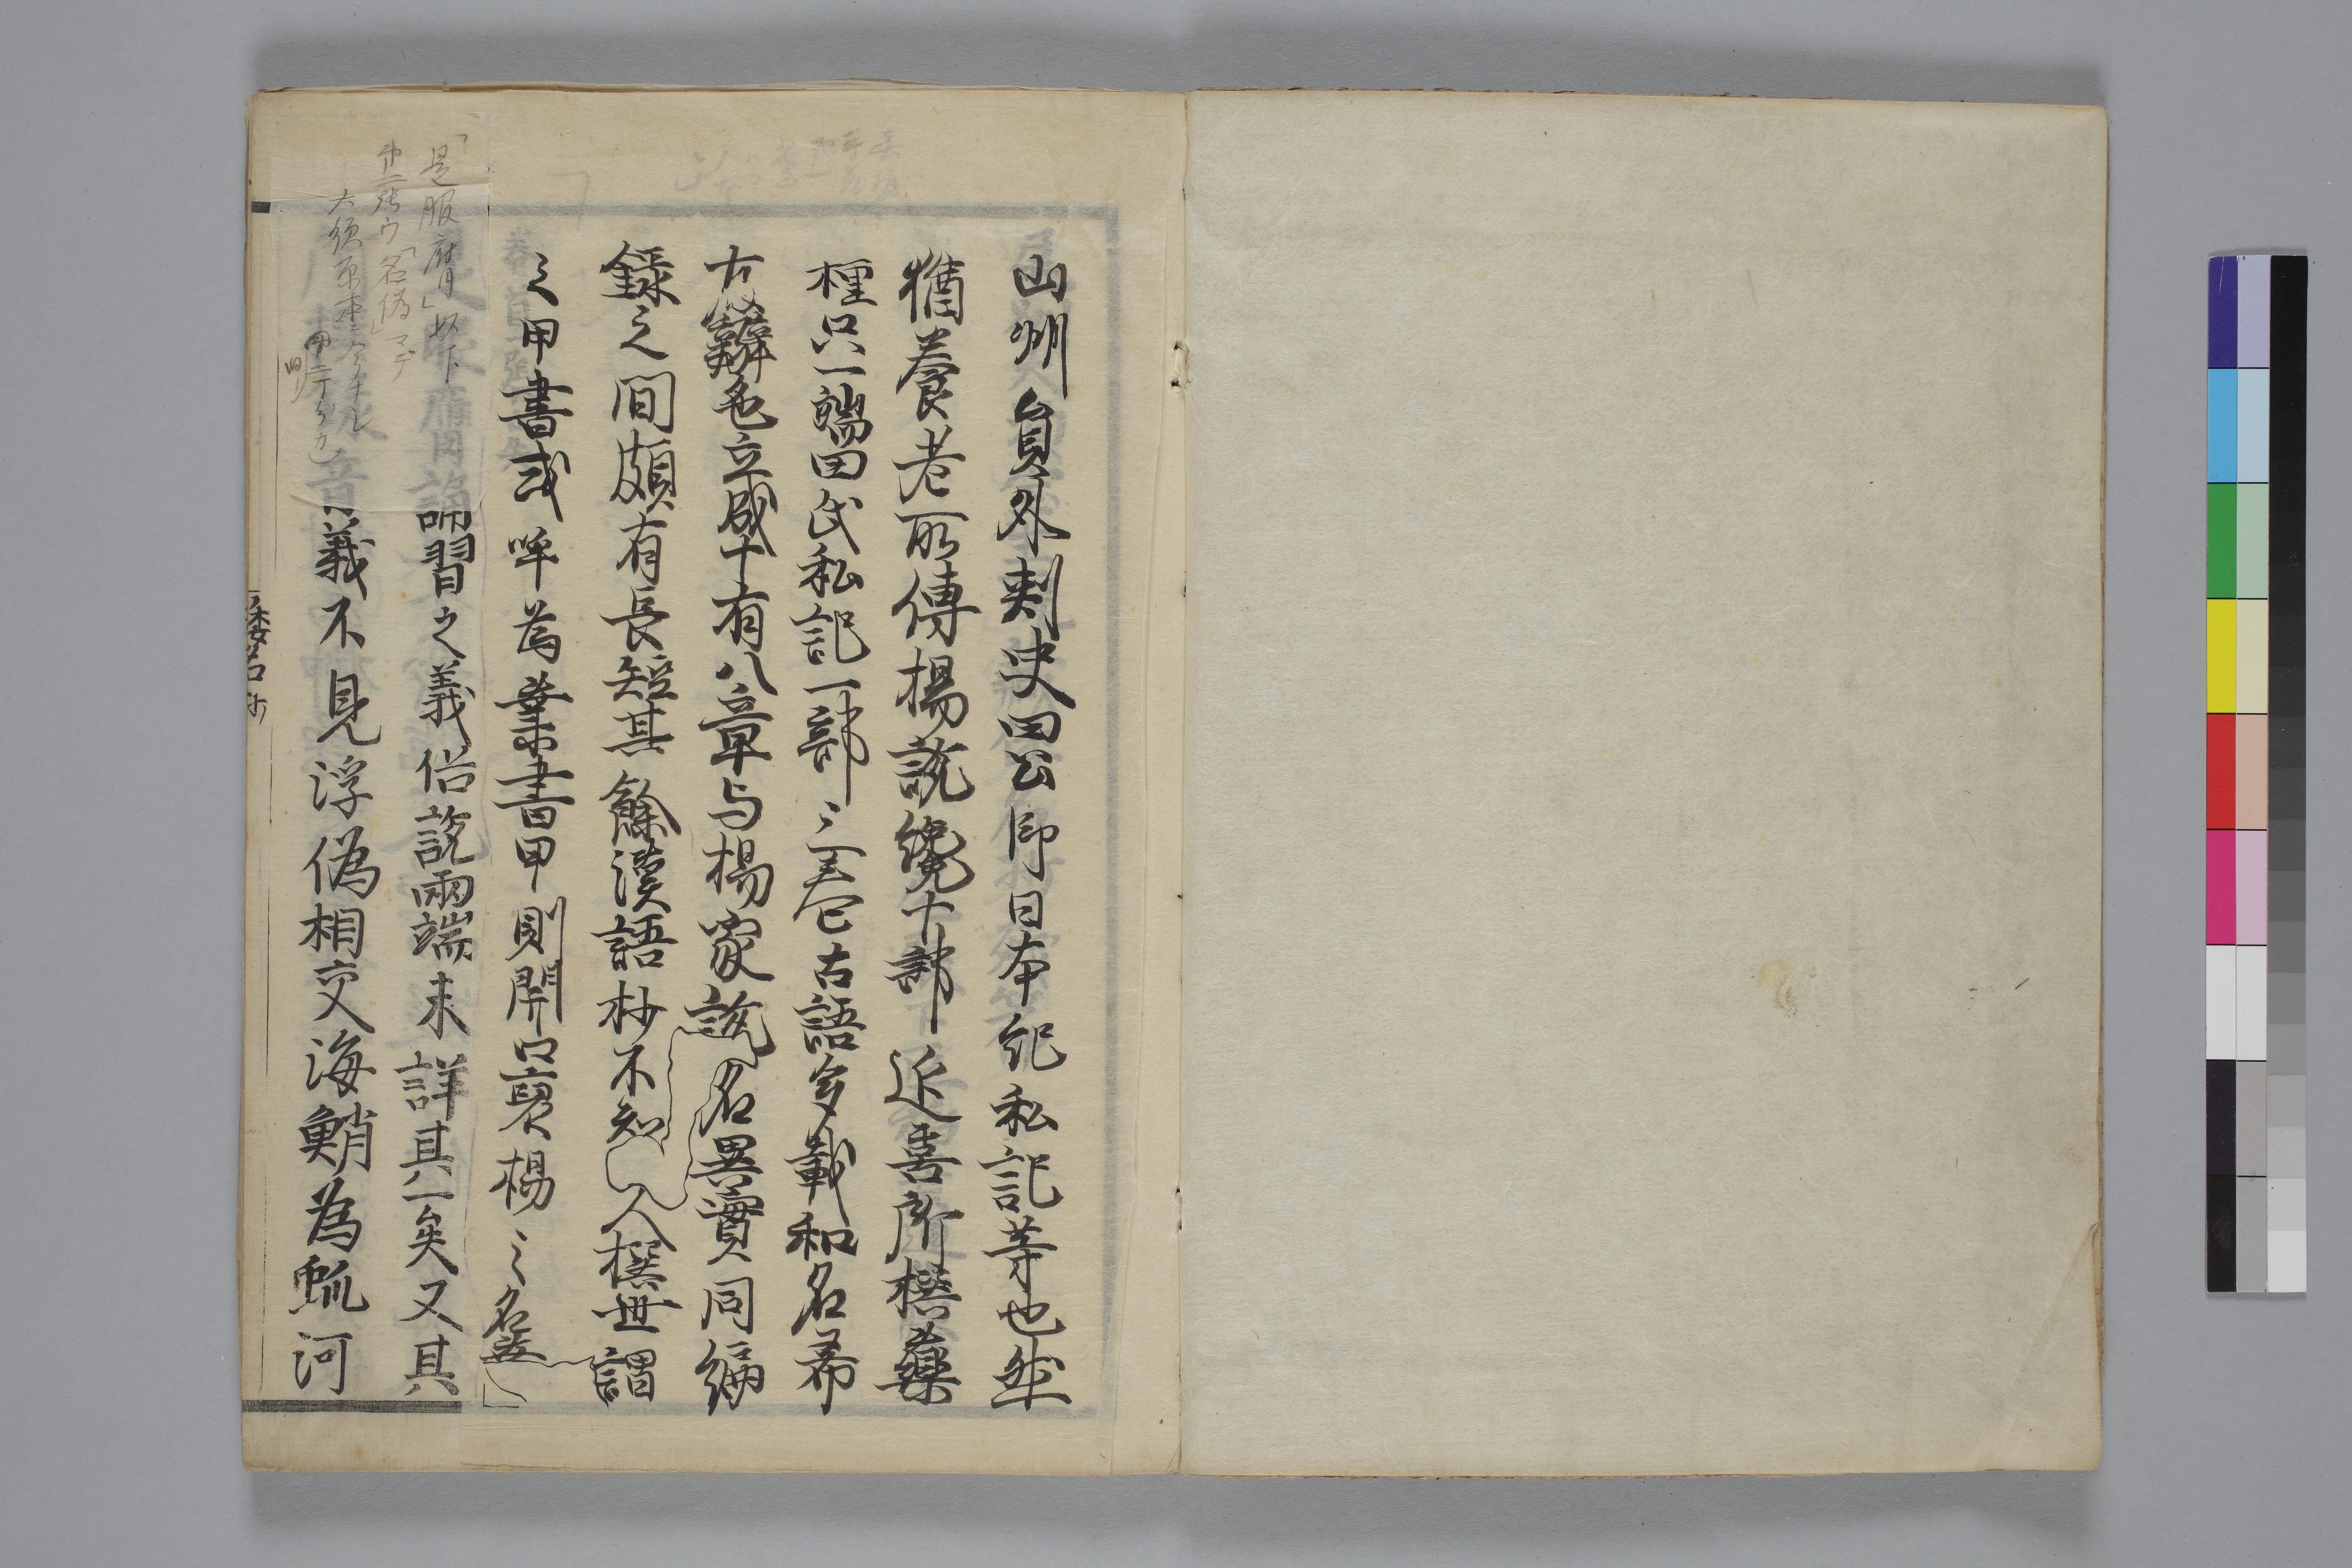 山州員外刺史田公即日本紀私記等也然
猶養老所傳楊說纔十部延喜所撰藥
種只一端田氏私記一部三卷古語多載和名希
存辨色立成十有八章与楊家說名異實同編
錄之間頗有長短其餘漢語抄不知
人撰世謂
之甲書或呼為業書甲則開口裒楊之名
誦習之義俗說兩端未詳其一矣又其
音義不見浮偽相交海鮹為䖣河
「是服膺」以下
第二張ウ「名偽」マデ
大須原本ニ今ナし
倭名抄